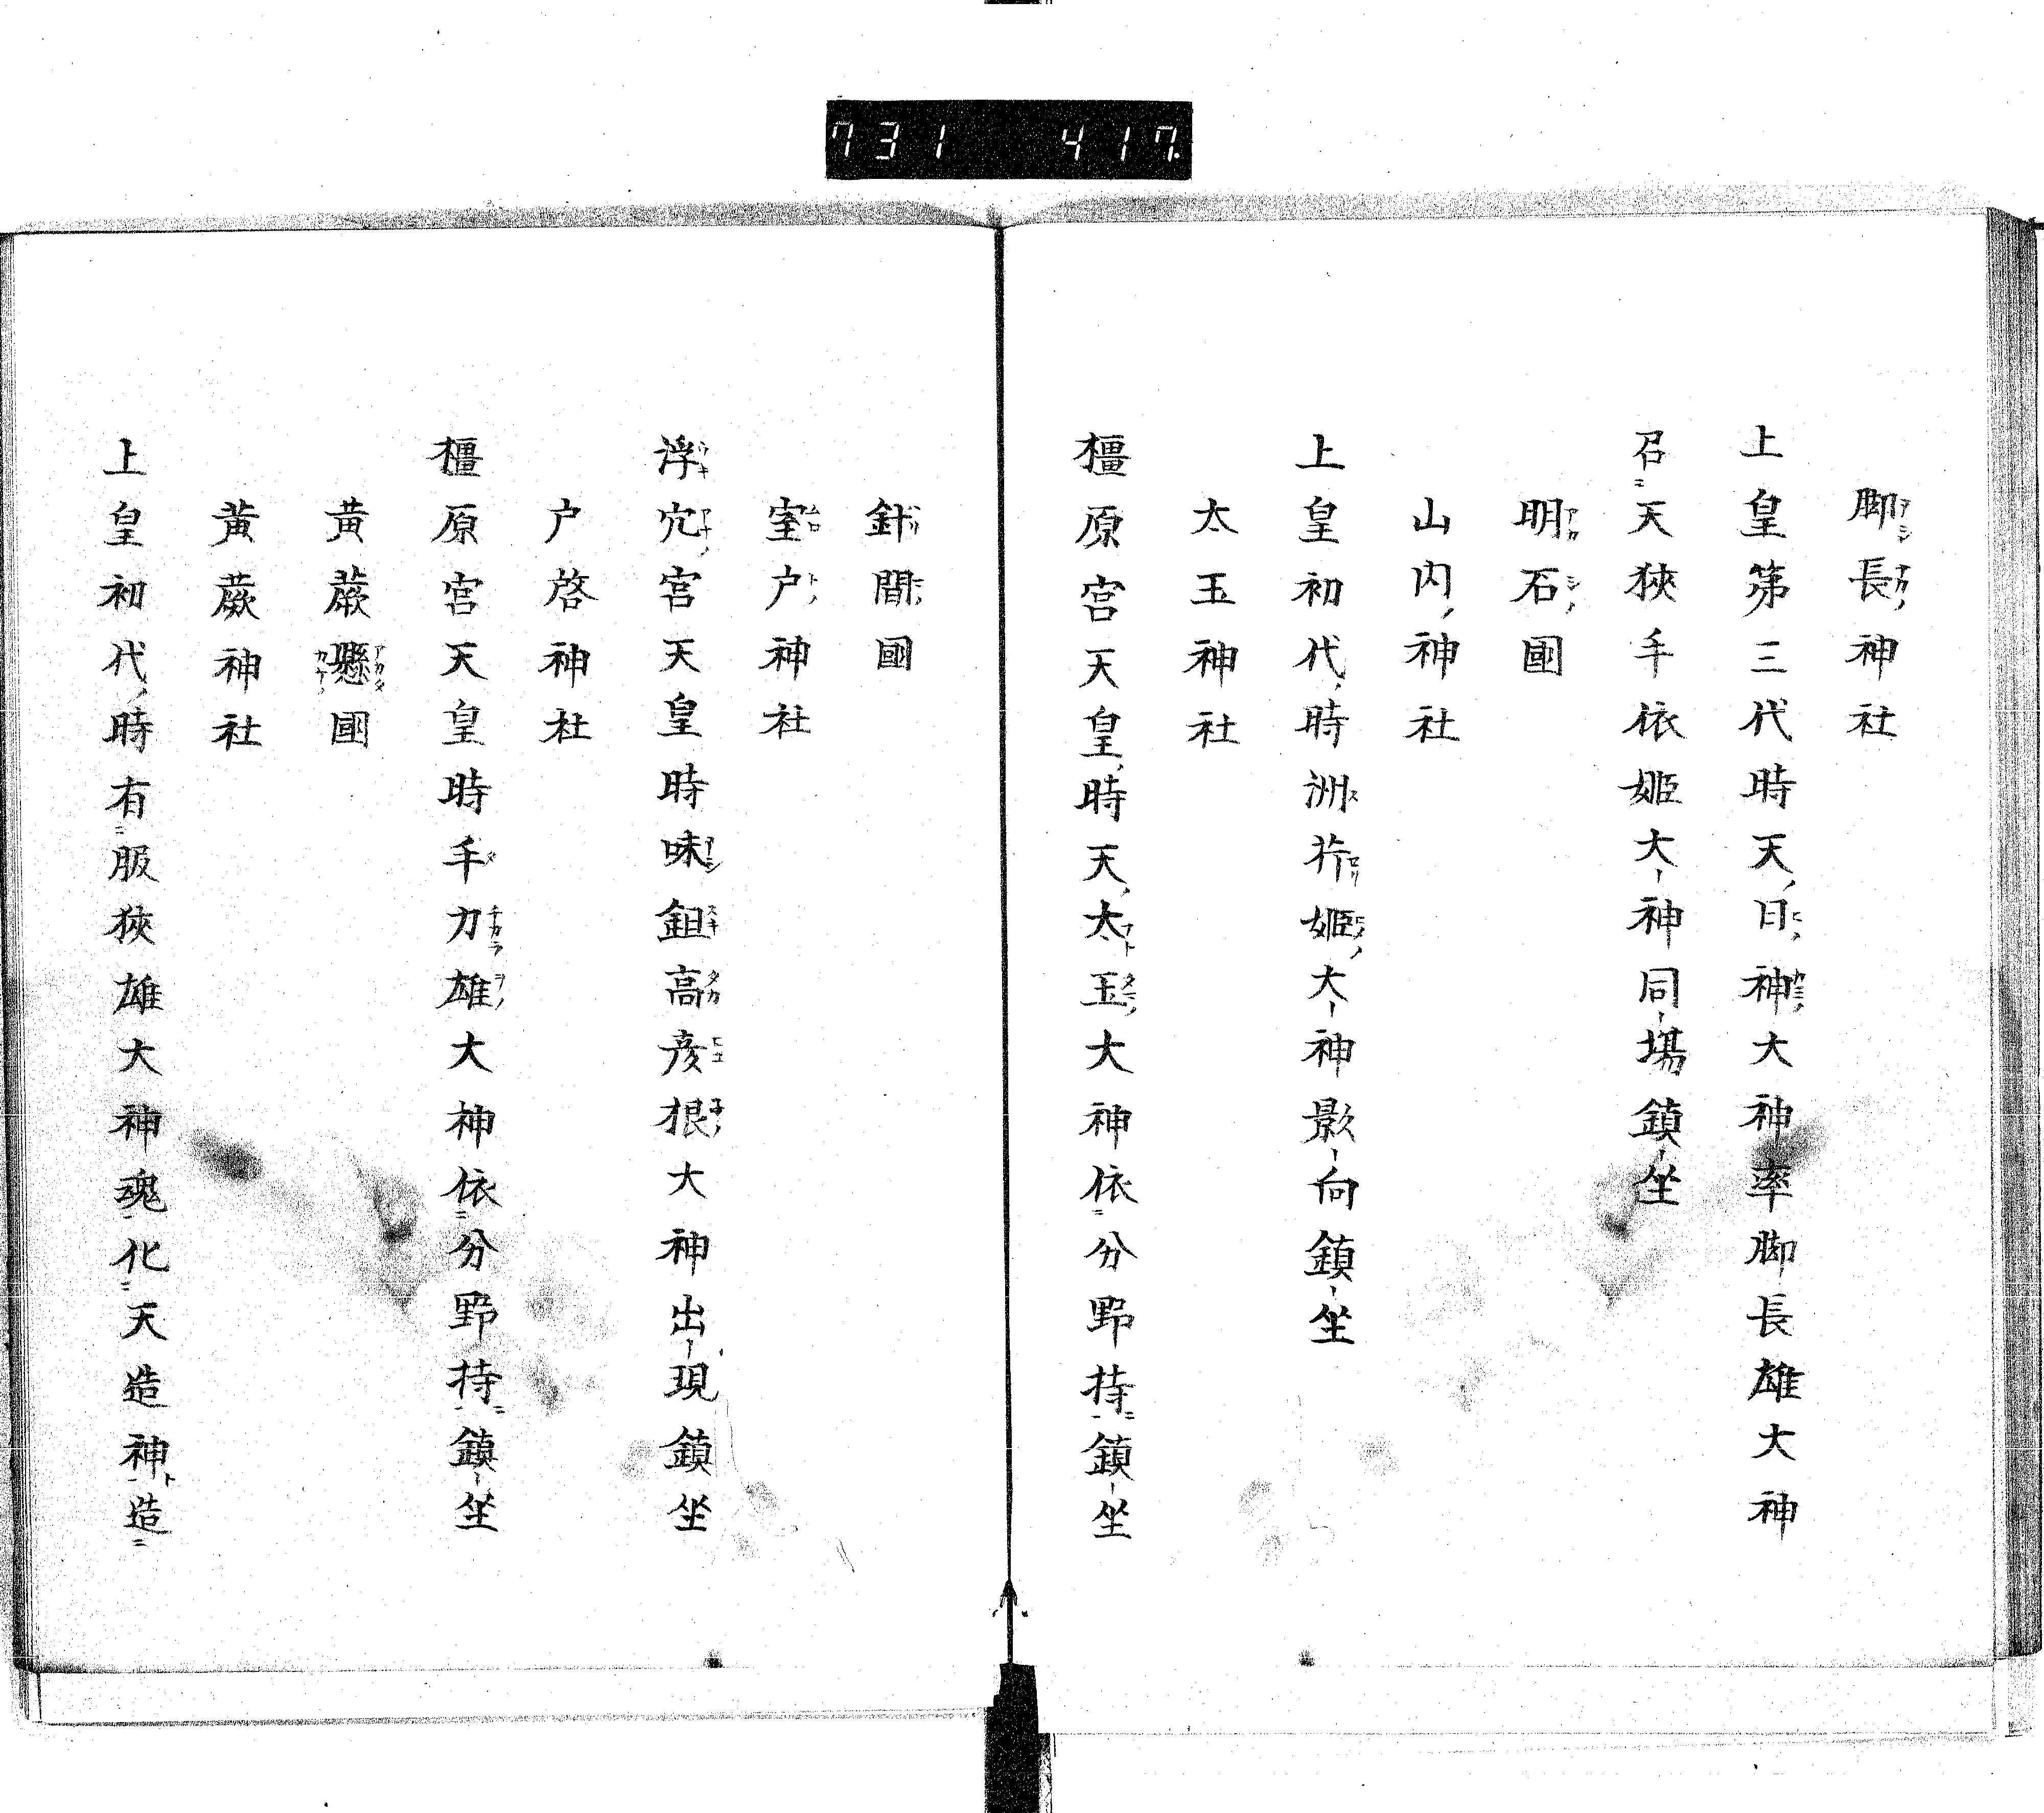 731 417
脚長神社
上皇第三代時天日神大神率脚長雄大神
召天狹手依姬大神同場鎮坐
明石國
山内神社
上皇初代時洲折姬大神影向鎮坐
太玉神社
橿原宮天皇時天太玉大神依分野持鎮坐
針間國
室戶神社
浮穴宮天皇時味鉏高彥根大神出現鎮坐
戶啓神社
橿原宮天皇時手力雄大神依分野持鎮坐
黃蕨懸國
黃蕨神社
上皇初代時有服狹雄大神魂化天造神造